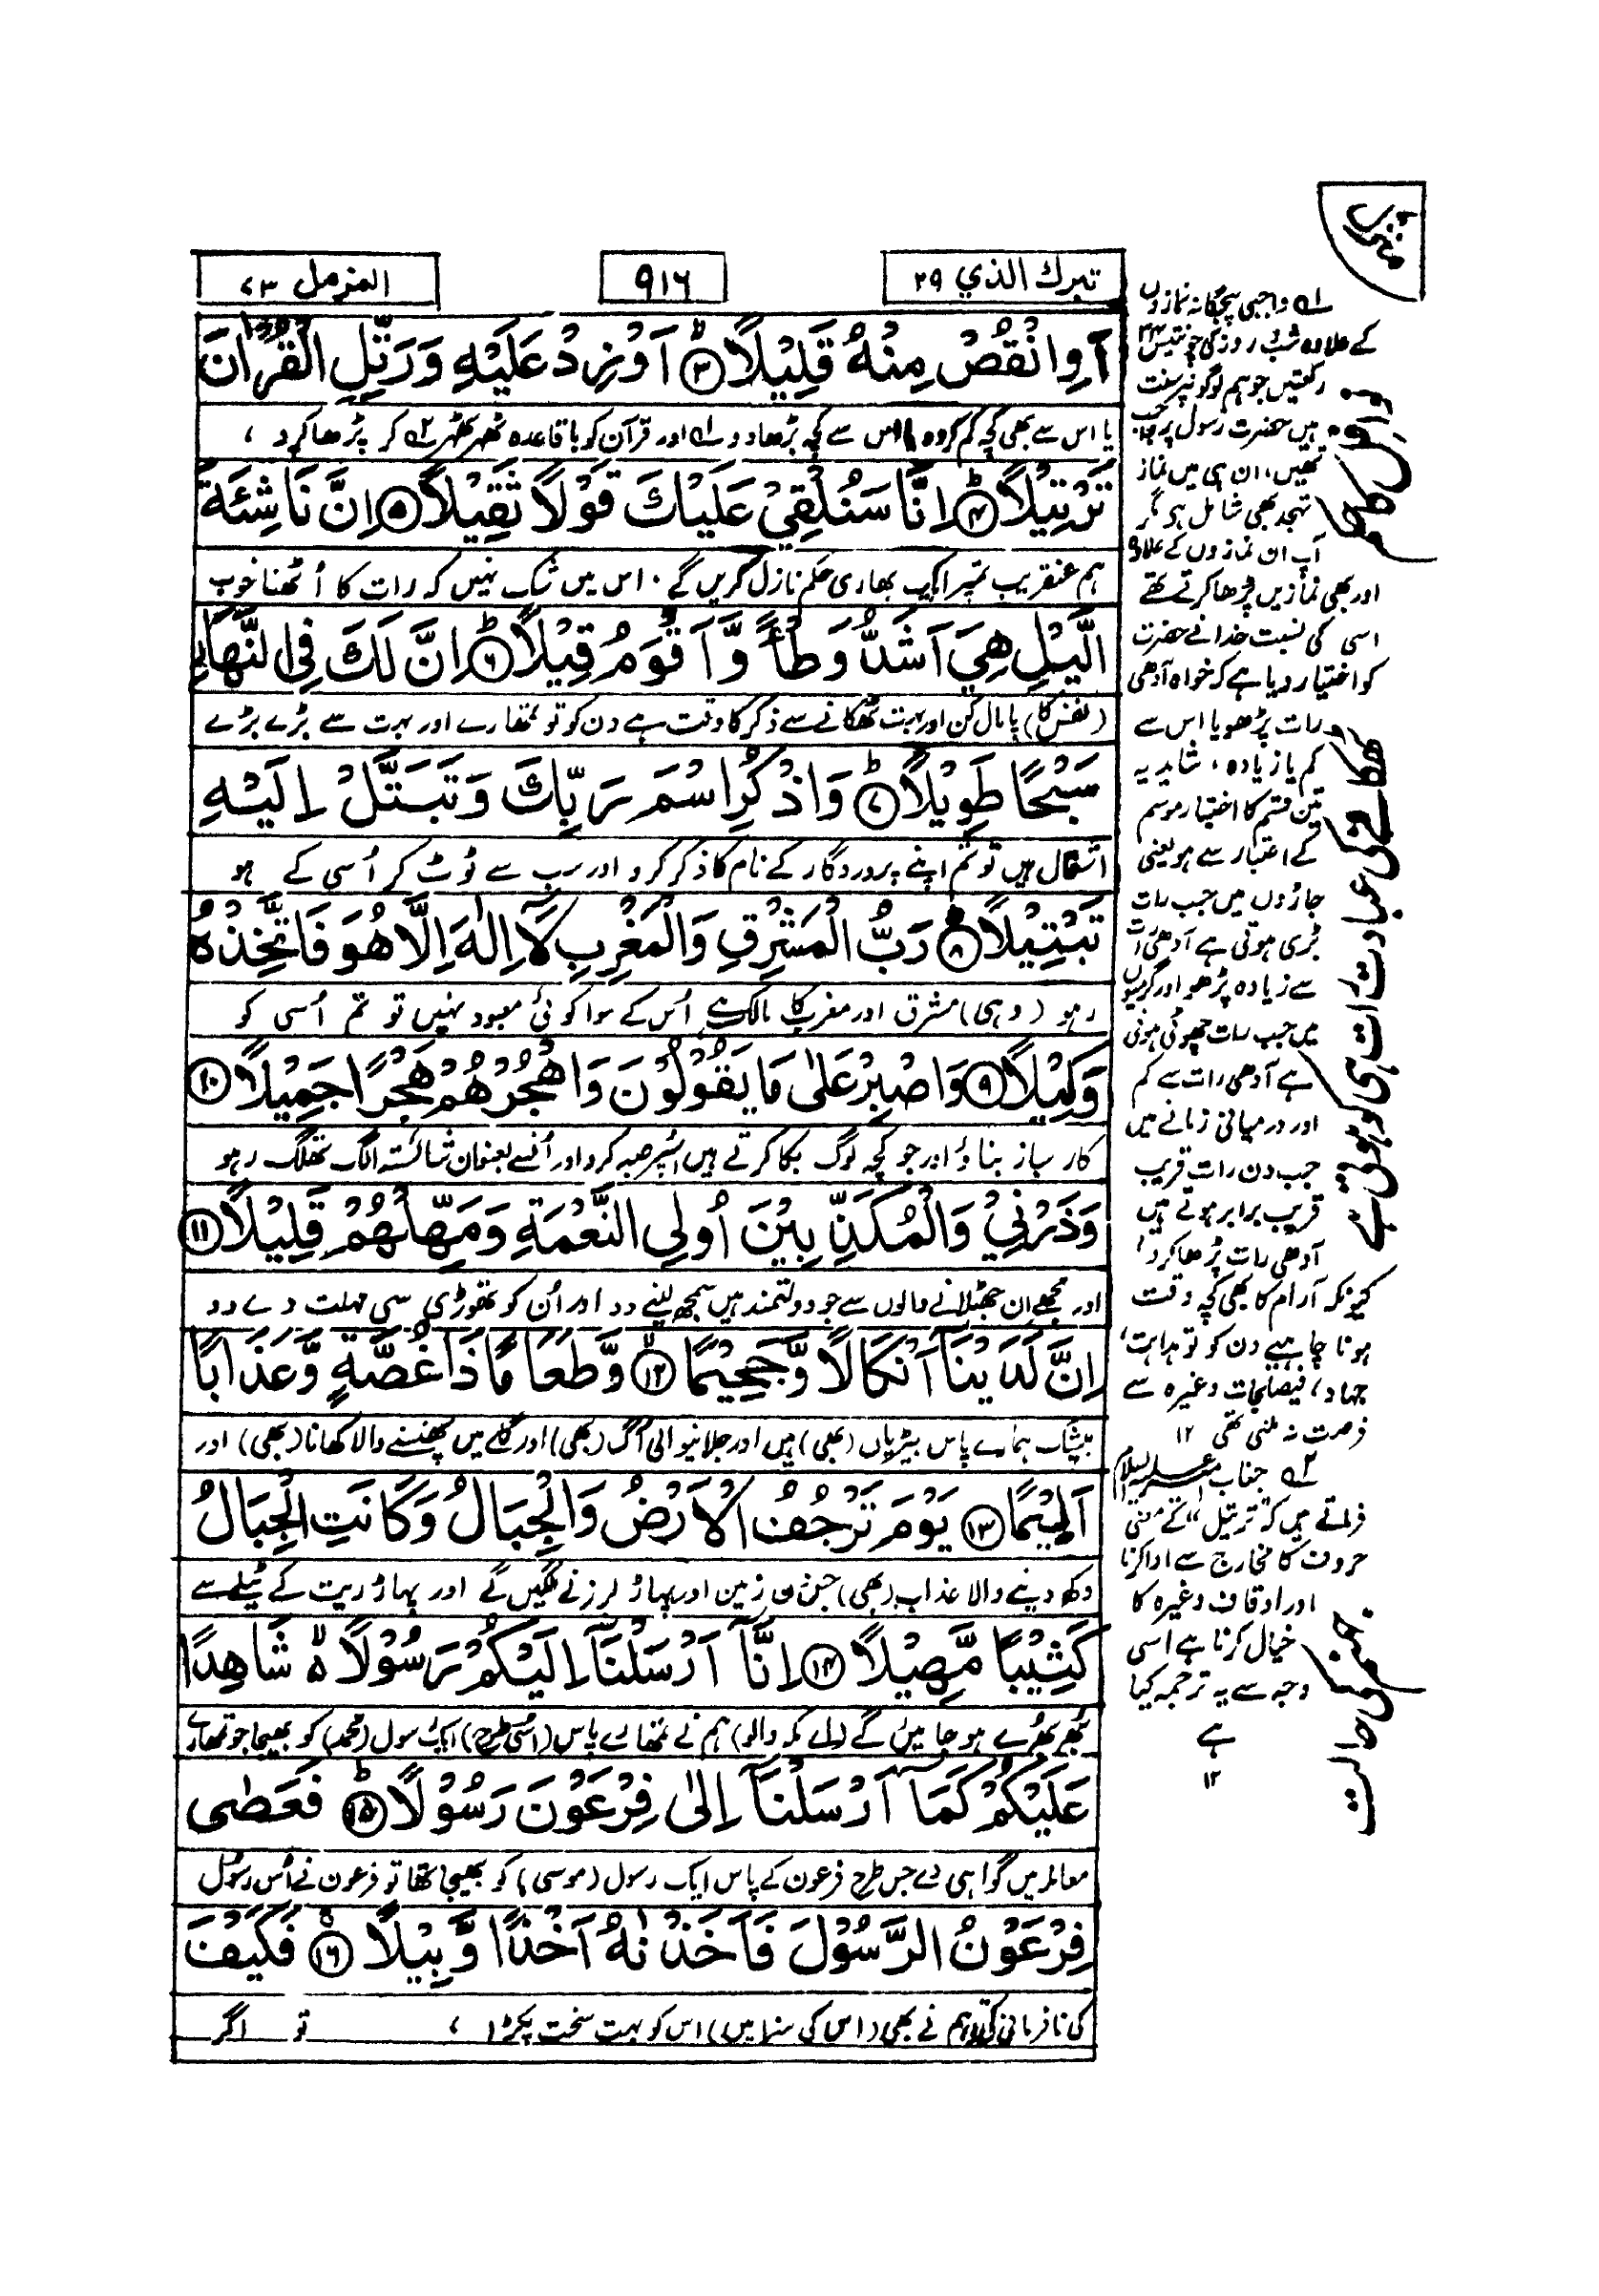 منزل
تبرك الذي ٢٩
٩١٦
المزمل ٧٣
اَوِ انْقُصْ مِنْهُ قَلِيْلًا ۙ۝۳ اَوْ زِدْ عَلَيْهِ وَرَتِّلِ الْقُرْاٰنَ
یا اس سے بھی کچھ کم کردو یا اس سے کچھ بڑھا دو ۱ اور قرآن کو باقاعدہ ٹھہر ٹھہر ۲ کر پڑھا کرو ،
تَرْتِيْلًا ؕ۝۴ اِنَّا سَنُلْقِيْ عَلَيْكَ قَوْلًا ثَقِيْلًا ۝۵ اِنَّ نَاشِئَةَ
ہم عنقریب تمپر ایک بھاری حکم نازل کریں گے ۰ اس میں شک نہیں کہ رات کا اُٹھنا خوب
الَّيْلِ هِيَ اَشَدُّ وَطْاً وَّاَقْوَمُ قِيْلًا ؕ۝۶ اِنَّ لَكَ فِي النَّهَارِ
(نفس کا) پامال کن اور بہت ٹھکانے سے ذکر کا وقت ہے دن کو تو تمھارے اور بہت سے بڑے بڑے
سَبْحًا طَوِيْلًا ؕ۝۷ وَاذْكُرِ اسْمَ رَبِّكَ وَتَبَتَّلْ اِلَيْهِ
اشغال ہیں تو تم اپنے پروردگار کے نام کا ذکر کرو اور سب سے ٹوٹ کر اُسی کے ہو
تَبْتِيْلًا ۝۸ رَبُّ الْمَشْرِقِ وَالْمَغْرِبِ لَآ اِلٰهَ اِلَّا هُوَ فَاتَّخِذْهُ
رہو (وہی) مشرق اور مغرب کا مالک ہے اُس کے سوا کوئی معبود نہیں تو تم اُسی کو
وَكِيْلًا ۝۹ وَاصْبِرْ عَلٰى مَا يَقُوْلُوْنَ وَاهْجُرْهُمْ هَجْرًا جَمِيْلًا ۝۱۰
کارساز بناؤ اور جو کچھ لوگ بکا کرتے ہیں اسپر صبر کرو اور اُنسے بعنوان شائستہ الگ تھلگ رہو
وَذَرْنِيْ وَالْمُكَذِّبِيْنَ اُولِي النَّعْمَةِ وَمَهِّلْهُمْ قَلِيْلًا ۝۱۱
اور مجھے ان جھٹلانے والوں سے جو دولتمند ہیں سمجھ لینے دو اور اُن کو تھوڑی سی مہلت دے دو
اِنَّ لَدَيْنَآ اَنْكَالًا وَّجَحِيْمًا ۙ۝۱۲ وَّطَعَامًا ذَا غُصَّةٍ وَّعَذَابًا
بیشک ہمارے پاس بیڑیاں (بھی) ہیں اور جلانیوالی آگ (بھی) اور گلے میں پھنسنے والا کھانا (بھی) اور
اَلِيْمًا ۝۱۳ يَوْمَ تَرْجُفُ الْاَرْضُ وَالْجِبَالُ وَكَانَتِ الْجِبَالُ
دکھ دینے والا عذاب (بھی) جس دن زمین اور پہاڑ لرزنے لگیں گے اور پہاڑ ریت کے ٹیلے سے
كَثِيْبًا مَّهِيْلًا ۝۱۴ اِنَّآ اَرْسَلْنَآ اِلَيْكُمْ رَسُوْلًا ۙ شَاهِدًا
بُھربُھرے ہو جائیں گے (اے مکہ والو) ہم نے تمھارے پاس (اسی طرح) ایک رسول (محمد) کو بھیجا جو تمھارے
عَلَيْكُمْ كَمَآ اَرْسَلْنَآ اِلٰى فِرْعَوْنَ رَسُوْلًا ؕ۝۱۵ فَعَصٰى
معاملہ میں گواہی دے جس طرح فرعون کے پاس ایک رسول (موسی) کو بھیجا تھا تو فرعون نے اُس رسول
فِرْعَوْنُ الرَّسُوْلَ فَاَخَذْنٰهُ اَخْذًا وَّبِيْلًا ۝۱۶ فَكَيْفَ
کی نافرمانی کی تو ہم نے بھی (اس کی سزا میں) اس کو بہت سخت پکڑا ، تو اگر
۱ واجبی پنجگانہ نمازوں
کے علاوہ شب و روز کی چونتیس ۳۴
رکعتیں جو ہم لوگونپر سنت
ہیں حضرت رسول پر واجب
تھیں، ان ہی میں نماز
تہجد بھی شامل ہو گر
آپ ان نمازوں کے علاوہ
اور بھی نمازیں پڑھا کرتے تھے
اسی کی نسبت خدا نے حضرت
کو اختیار دیا ہے کہ خواہ آدھی
رات پڑھو یا اس سے
کم یا زیادہ ، شاید یہ
تین قسم کا اختیار موسم
کے اعتبار سے ہو یعنی
جاڑوں میں جب رات
بڑی ہوتی ہے آدھی رات
سے زیادہ پڑھو اور گرمیوں
میں جب رات چھوٹی ہوتی
ہے آدھی رات سے کم
اور درمیانی زمانے میں
جب دن رات قریب
قریب برابر ہوتے ہیں
آدھی رات پڑھا کرو
کیونکہ آرام کا بھی کچھ وقت
ہونا چاہیے دن کو تو ہدایت ،
جہاد ، فیصلجات وغیرہ سے
فرصت نہ ملتی تھی ۱۲
۲ جناب امیر علیہ السلام
فرماتے ہیں کہ ترتیل ،، کے معنی
حروف کا مخارج سے ادا کرنا
اور اوقاف وغیرہ کا
خیال کرنا ہے اسی
وجہ سے یہ ترجمہ کیا
ہے
۱۲
ٹھکانے کی عبادت رات ہی کو ہوتی ہے
جہنم کی حالت